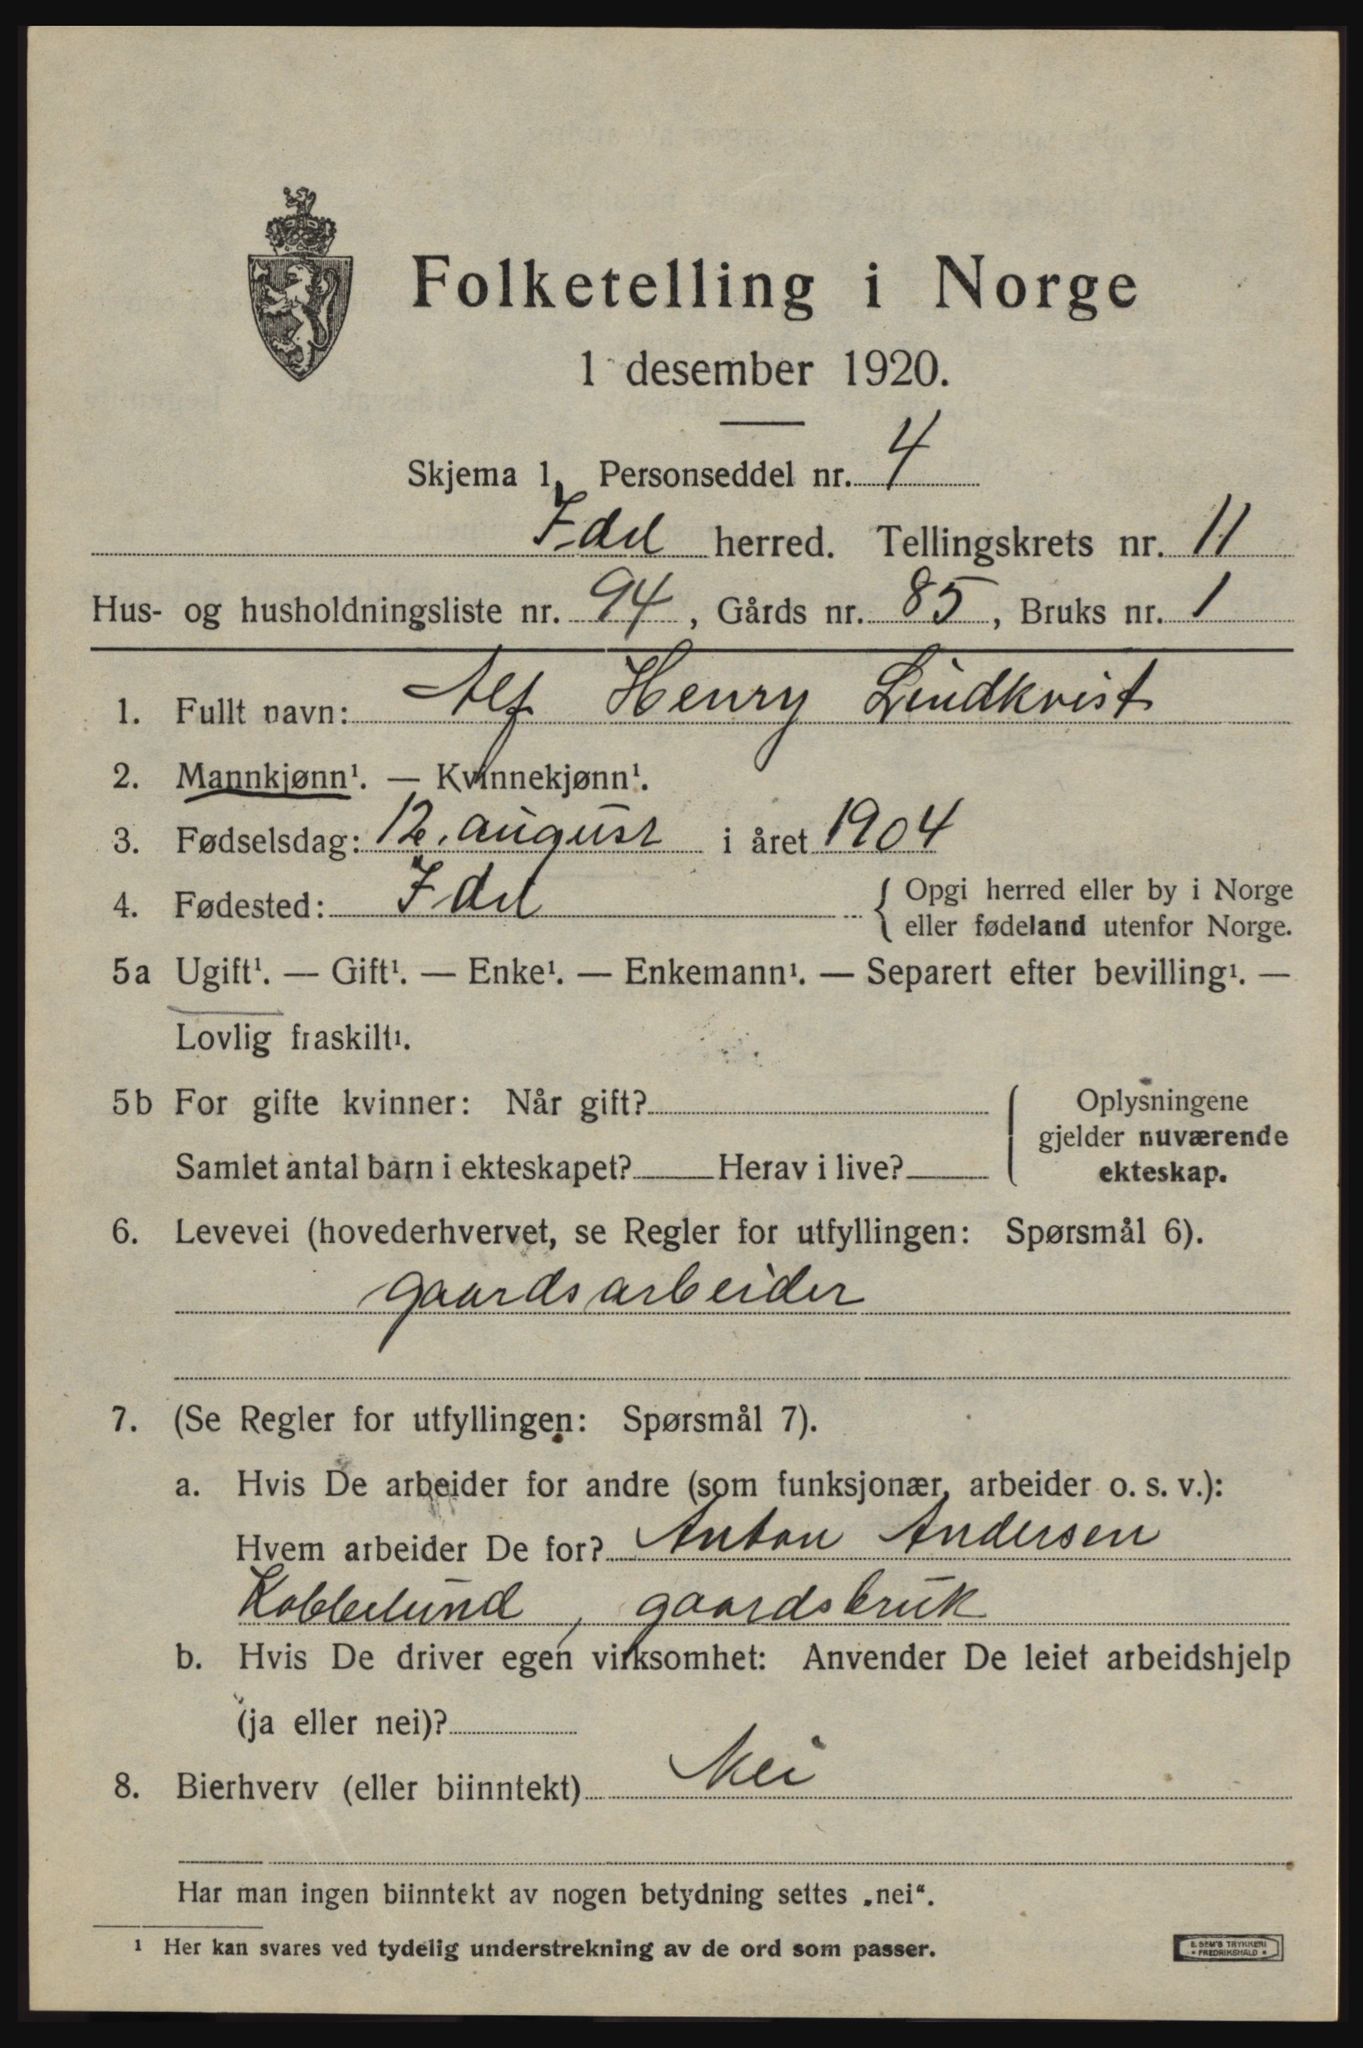 Folketelling i Norge
1 desember 1920.
Skjema 1. Personseddel nr. 4
Idd herred. Tellingskrets nr. 11
Hus- og husholdningsliste nr. 94, Gårds nr. 85, Bruks nr. 1
1. Fullt navn: Alf Henry Lindkvist
2. Mannkjønn¹. — Kvinnekjønn¹.
3. Fødselsdag: 12. august i året 1904
4. Fødested: Idd { Opgi herred eller by i Norge
eller fødeland utenfor Norge.
5a Ugift¹. — Gift¹. — Enke¹. — Enkemann¹. — Separert efter bevilling¹. —
Lovlig fraskilt¹.
5b For gifte kvinner: Når gift? Oplysningene
gjelder nuværende
Samlet antal barn i ekteskapet? Herav i live? ekteskap.
6. Levevei (hovederhvervet, se Regler for utfyllingen: Spørsmål 6).
gaardsarbeider
7. (Se Regler for utfyllingen: Spørsmål 7).
a. Hvis De arbeider for andre (som funksjonær, arbeider o. s. v.):
Hvem arbeider De for? Anton Andersen
Kobbelund, gaardsbruk
b. Hvis De driver egen virksomhet: Anvender De leiet arbeidshjelp
(ja eller nei)?
8. Bierhverv (eller biinntekt) Nei
Har man ingen biinntekt av nogen betydning settes „nei“.
¹ Her kan svares ved tydelig understrekning av de ord som passer.
E. SEM'S TRYKKERI
• FREDRIKSHALD •